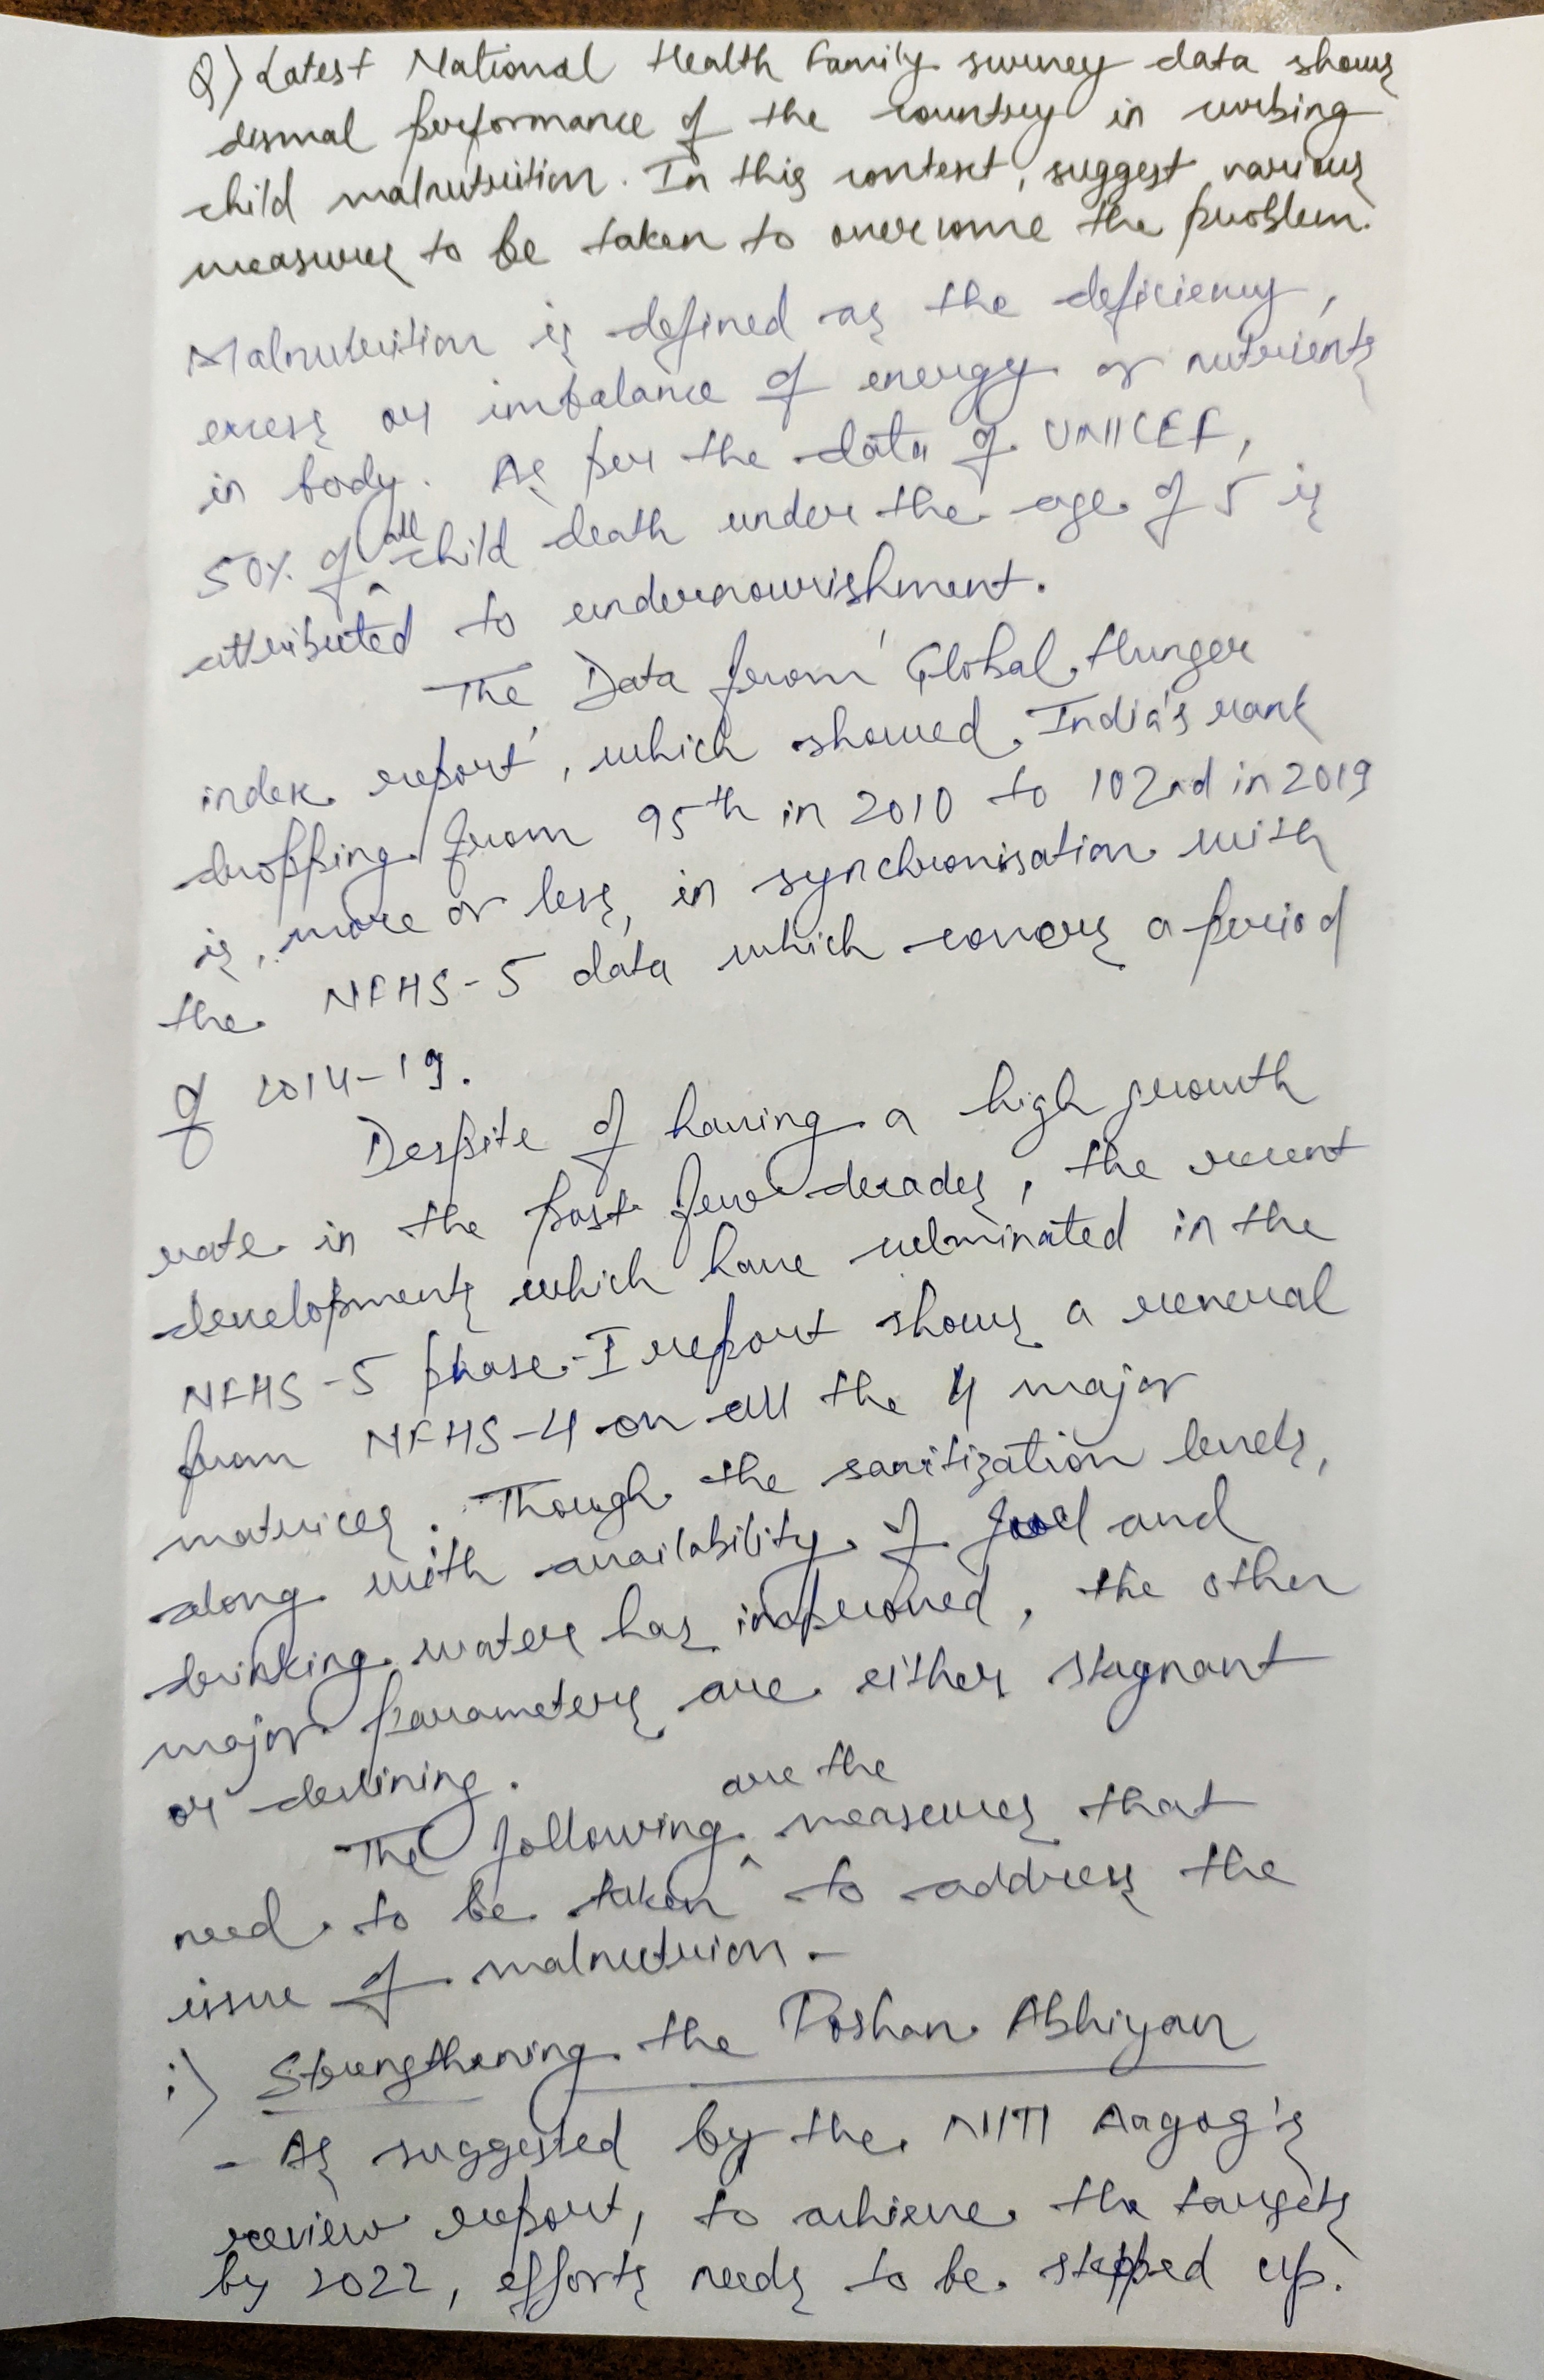 Q) Latest National Health Family survey data shows
dismal performance of the country in curbing
child malnutrition. In this context, suggest various
measures to be taken to overcome the problem.
Malnutrition is defined as the deficiency,
excess or imbalance of energy or nutrients
in body. As per the data of UNICEF,
50% of all child death under the age of 5 is
attributed to undernourishment.
The Data from 'Global Hunger
index report', which showed India's rank
dropping from 95th in 2010 to 102nd in 2019
is, more or less, in synchronisation with
the NFHS-5 data which covers a period
of 2014-19.
Despite of having a high growth
rate in the past few decades, the recent
developments which have culminated in the
NFHS-5 phase-I report shows a reversal
from NFHS-4 on all the 4 major
matrices. Though the sanitization levels,
along with availability of fuel and
drinking water has improved, the other
major parameters are either stagnant
or declining.
The following are the measures that
need to be taken to address the
issue of malnutrion -
i) Strengthening the Poshan Abhiyan
- As suggested by the NITI Aayog's
review report, to achieve the targets
by 2022, efforts needs to be stepped up.